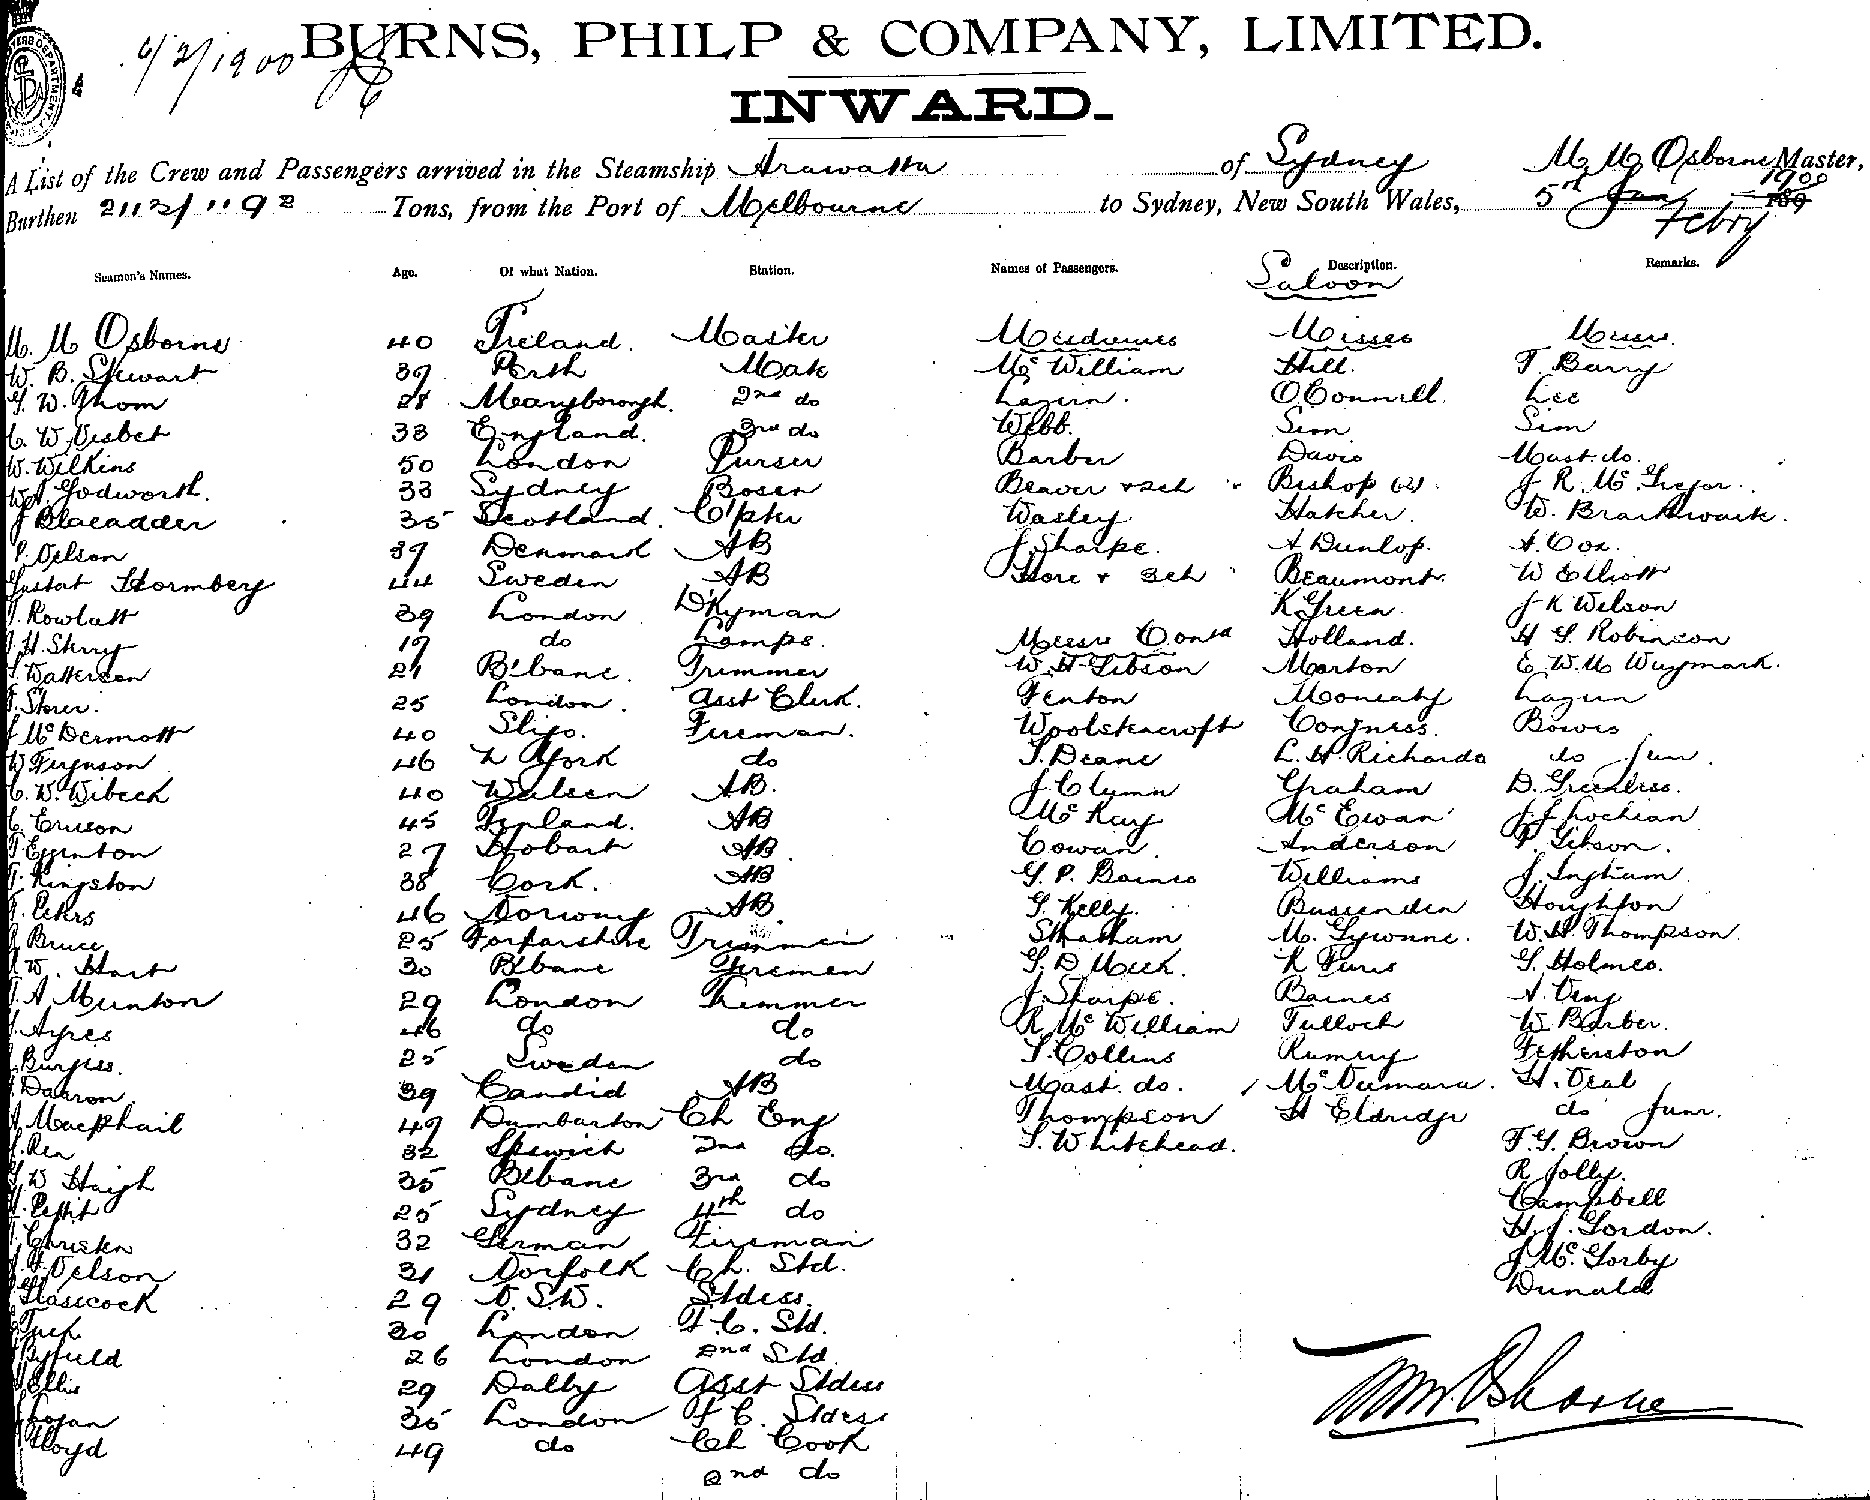 6/2/1900
BURNS, PHILP & COMPANY, LIMITED.
INWARD.
A List of the Crew and Passengers arrived in the Steamship Arawatta of Sydney M. M. Osborne Master,
Burthen 2112/1192 Tons, from the Port of Melbourne to Sydney, New South Wales, 5th Jan Febry 189 1900
Seamen's Names. Age. Of what Nation. Station. Names of Passengers. Description. Remarks.
Saloon
M. M Osborne 40 Ireland. Master Mesdames Misses Messrs.
W. B. Stewart 39 Perth Mate McWilliam Hill. T. Barry
G. W. Thom 28 Maryborough. 2nd do Lazern. O'Connell. Lee
C. W Nisbet 33 England. 3rd do Webb. Sim Sim
W. Wilkins 50 London Purser Barber Davis Mast. do.
Godworth. 33 Sydney Bosen Beaver + Bishop (2). J R. McGregor.
J Blacadder 35 Scotland. C'pter Wasley Hatcher. W. Braithwaite.
P. Nelson 39 Denmark AB J. Sharpe. A Dunlop. A. Cox.
Gustaf Stormberg 44 Sweden AB Hore + Beaumont. W Elliott
Rowlatt 39 London D'Kyman K Green. J K Wilson
H. Sherry 19 do Lamps. Messrs Contd Holland. H G. Robinson
Watterson 21 B'bane. Trimmer W. H. Gibson Morton E. W. M Waymark.
Storer. 25 London. Asst Clerk. Fenton Moneaty Lazern
J McDermott 40 Sligo. Fireman. Woolstencroft Congness. Bowes
W Ferguson 46 N York do T. Deane L. H. Richards do Jun.
C. W. Wibeck 40 AB. J Clymn Graham D. Greenless.
C. Ericson 45 Finland. AB McKay McEwan J J Lochian
Egginton 27 Hobart AB Cowan. Anderson P. Gibson.
Kingston 38 Cork. AB G. P. Baines Williams J. Ingham.
46 Norway AB G. Kelly. Bussenden Houghton
Bruce 25 Forfarshire Trimmer Stratham M. Gywnne. W. H. Thompson.
W. Hart 30 B'bane Firemen G. D Meek. K Furis G. Holmes.
A Munton 29 London Trimmer J. Sharpe. Baines A. Veng
Ayres 46 do do R McWilliam Tulloch W Barber.
Burgess. 25 Sweden do T. Collins Rumsey Fetherston
39 Candid AB Mast. do. McNumara. H. Veal
A Macphail 49 Dumbarton Ch Eng Thompson H Eldridge do Junr.
J. Rea 32 Ipswich 2nd do. T. Whitehead. F. G. Brown
W Haigh 35 B'bane 3rd do R Jolly.
Pettit 25 Sydney 4th do Campbell
Christen 32 German Fireman H. J. Gordon.
Nelson 31 Norfolk Ch. Std. J McGorby
Glasscock 29 N. S. W. Stdess. Dunald
Tuck 30 London F. C. Std.
Byfield 26 London 2nd Std.
Ellis 29 Dalby Asst Stdess
Hogan 35 London F C. Stdess
Lloyd 49 do Ch Cook
2nd do
M M Osborne